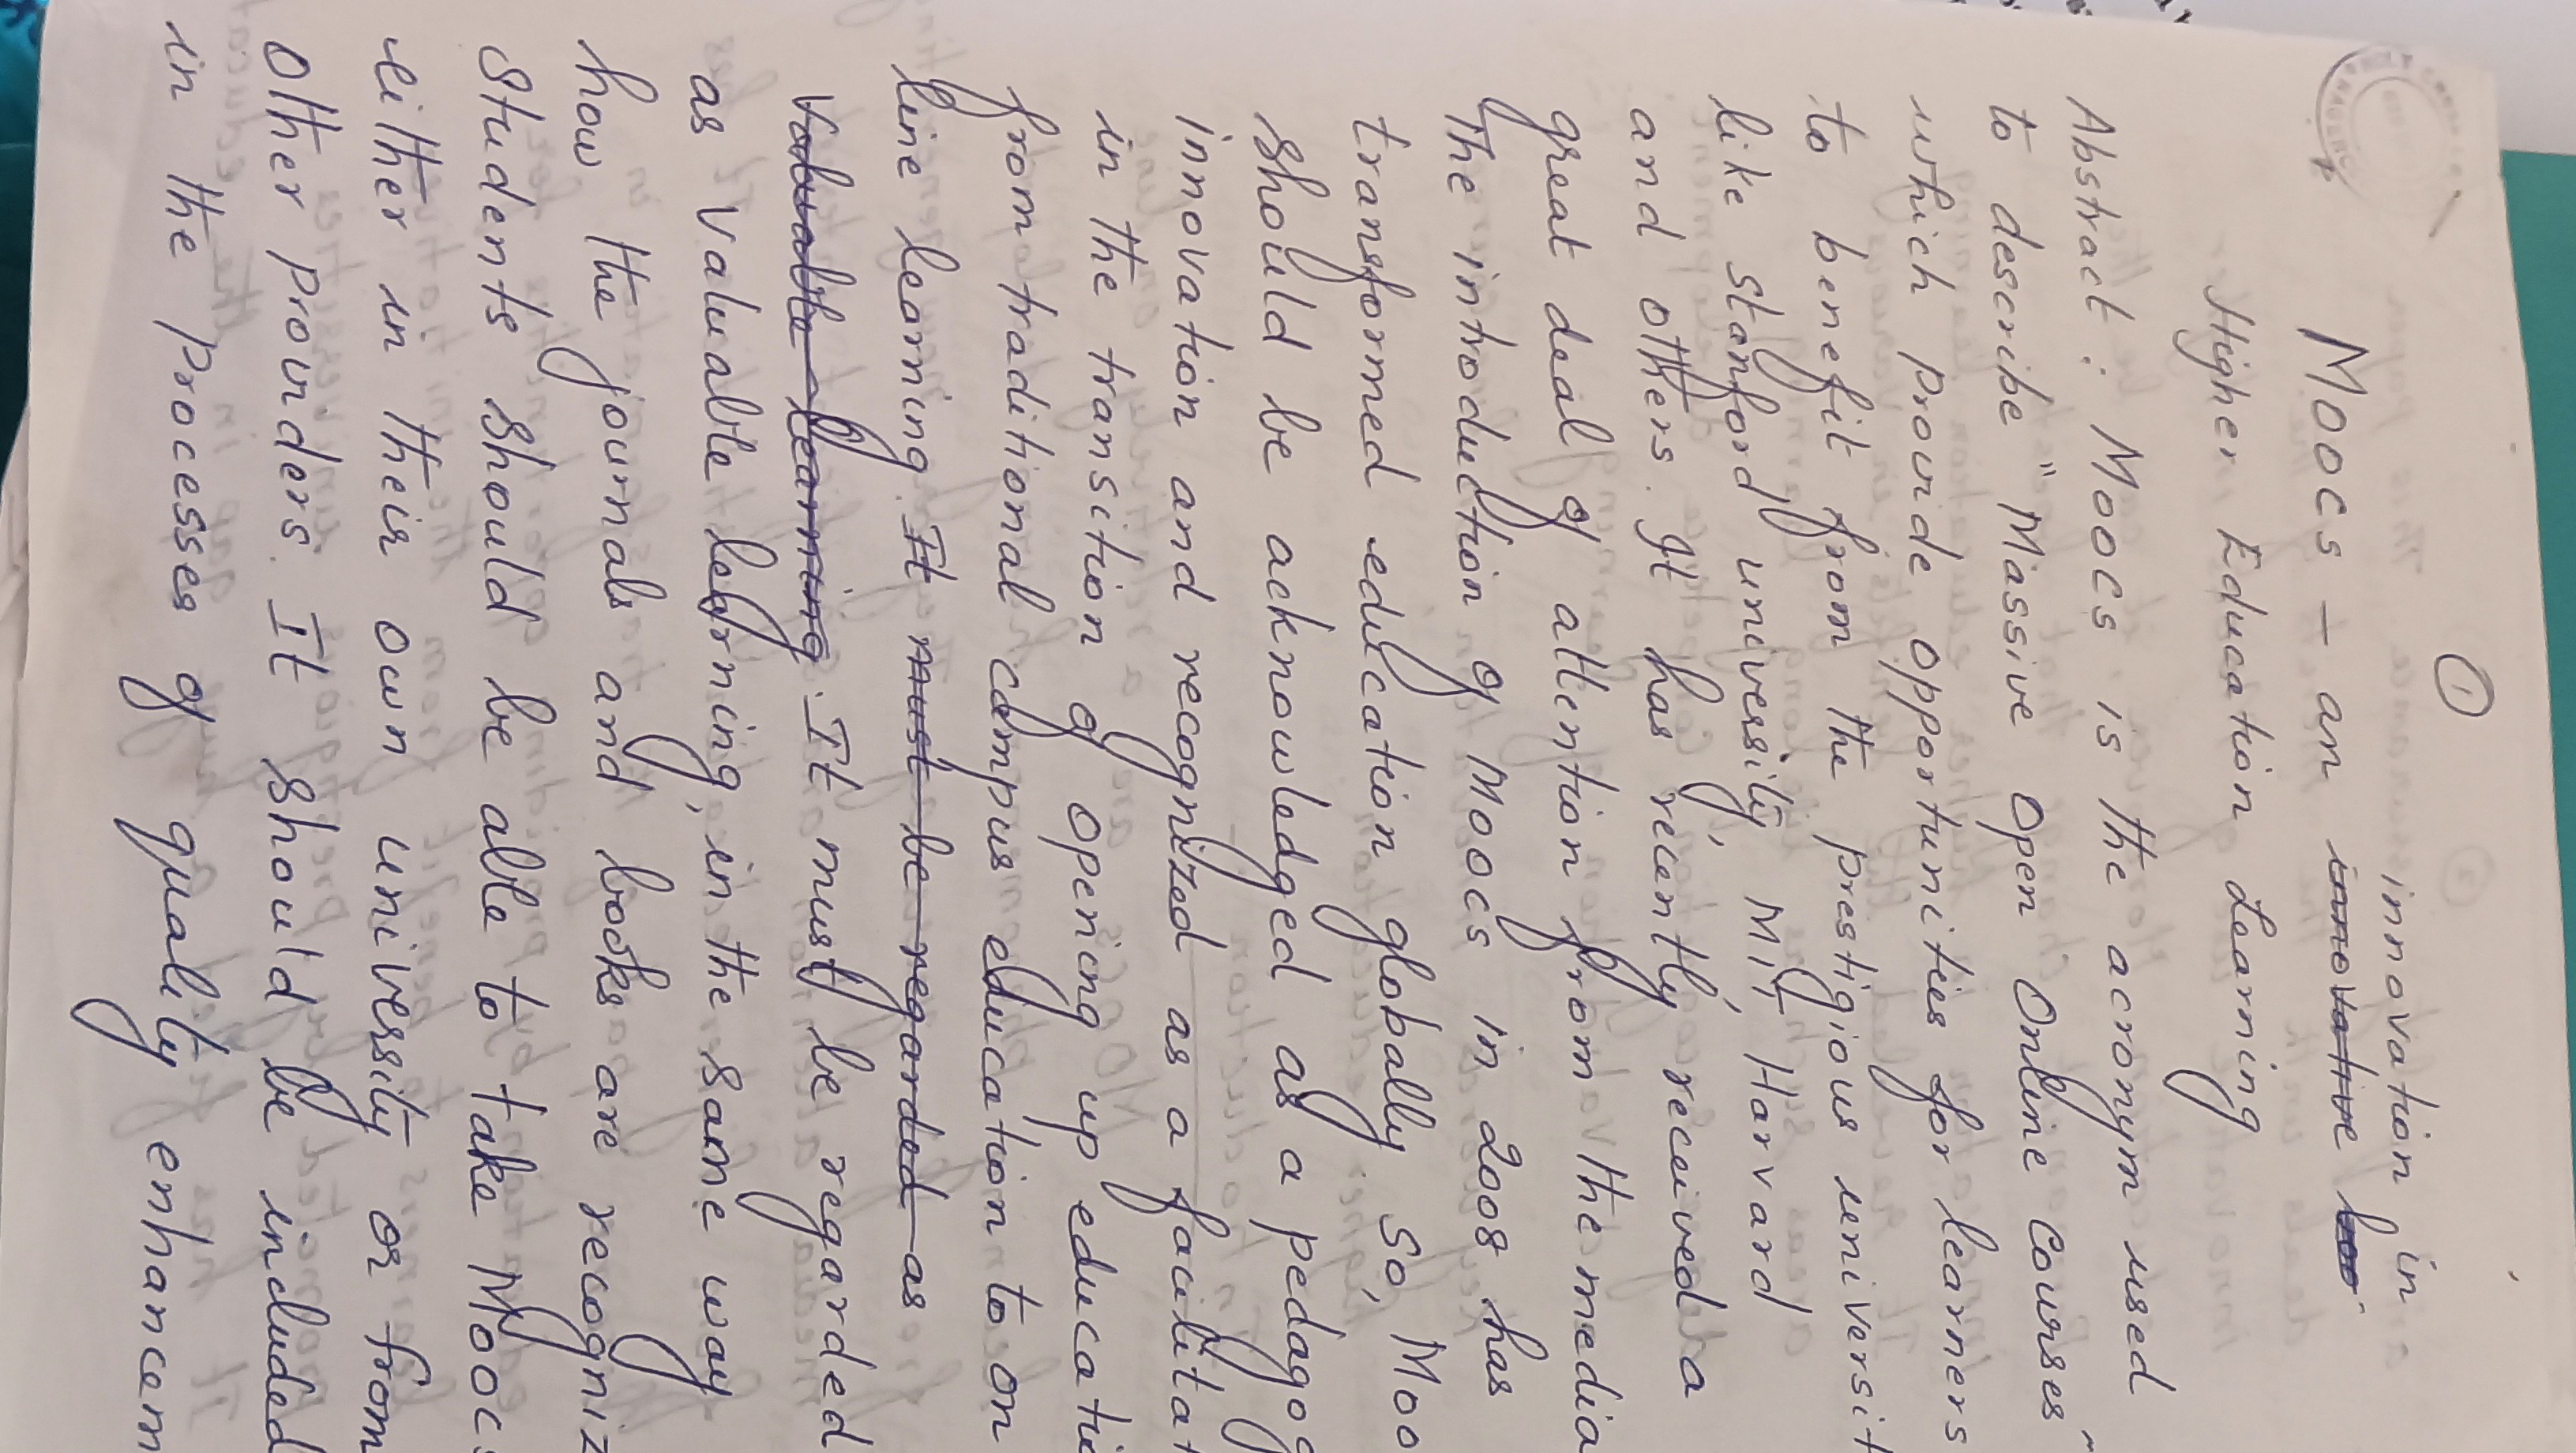 ①
innovation in
MOOCs - an innovative
Higher Education Learning
Abstract: MOOCs, is the acronym used
to describe "Massive Open Online Courses"
which provide opportunities for learners
to benefit from the prestigious universit
like stanford university, MIT, Harvard
and others. It has recently, received a
great deal of attention from the media
The introduction of MOOCs in 2008 has
transformed education globally. So, Moo
should be acknowledged as a pedagog
innovation and recognized as a facilitat
in the transition of opening up educati
from traditional campus education to on
line learning. It must be regarded as
Valuable learning. It must be regarded
as valuable learning, in the same way
how the journals and books are recogniz
Students should be able to take MOOCs
either in their own university or from
other providers. It should be included
in the processes of quality enhancem